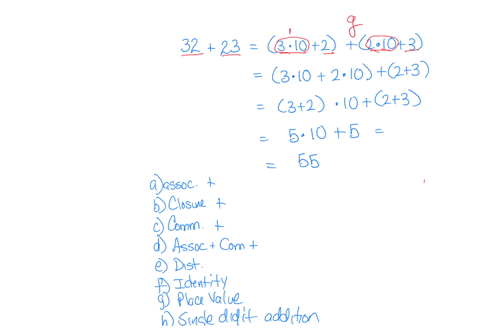 g
32 + 23 = (3·10 + 2) + (2·10 + 3)
= (3·10 + 2·10) + (2+3)
= (3+2) · 10 + (2+3)
= 5·10 + 5 =
= 55
a) assoc. +
b) Closure +
c) Comm. +
d) Assoc + Com +
e) Dist.
f) Identity
g) Place Value
h) Single digit addition